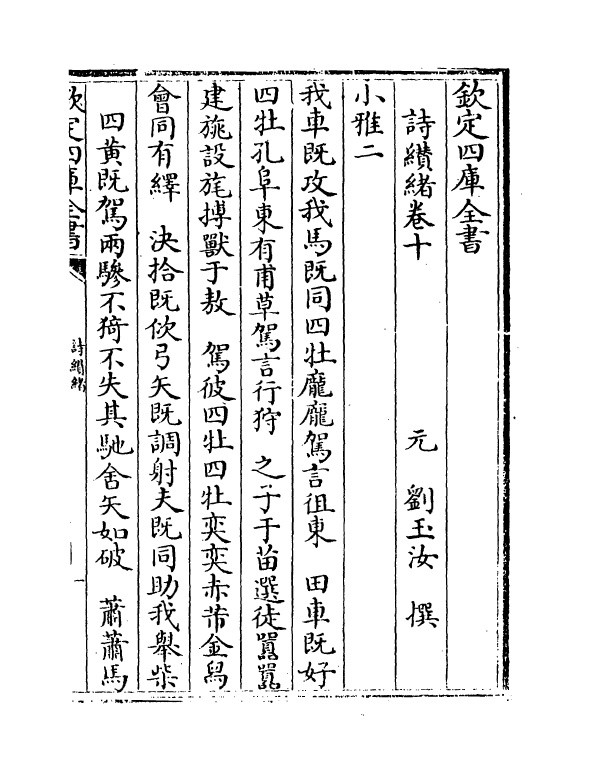 欽定四庫全書
詩纘緒卷十　元　劉玉汝　撰
小雅二
我車既攻我馬既同四牡龐龐駕言徂東　田車既好
四牡孔阜東有甫草駕言行狩　之子于苗選徒囂囂
建旐設旄搏獸于敖　駕彼四牡四牡奕奕赤芾金舄
會同有繹　決拾既佽弓矢既調射夫既同助我舉柴
四黃既駕兩驂不猗不失其馳舍矢如破　蕭蕭馬
欽定四庫全書
詩纘緒
一